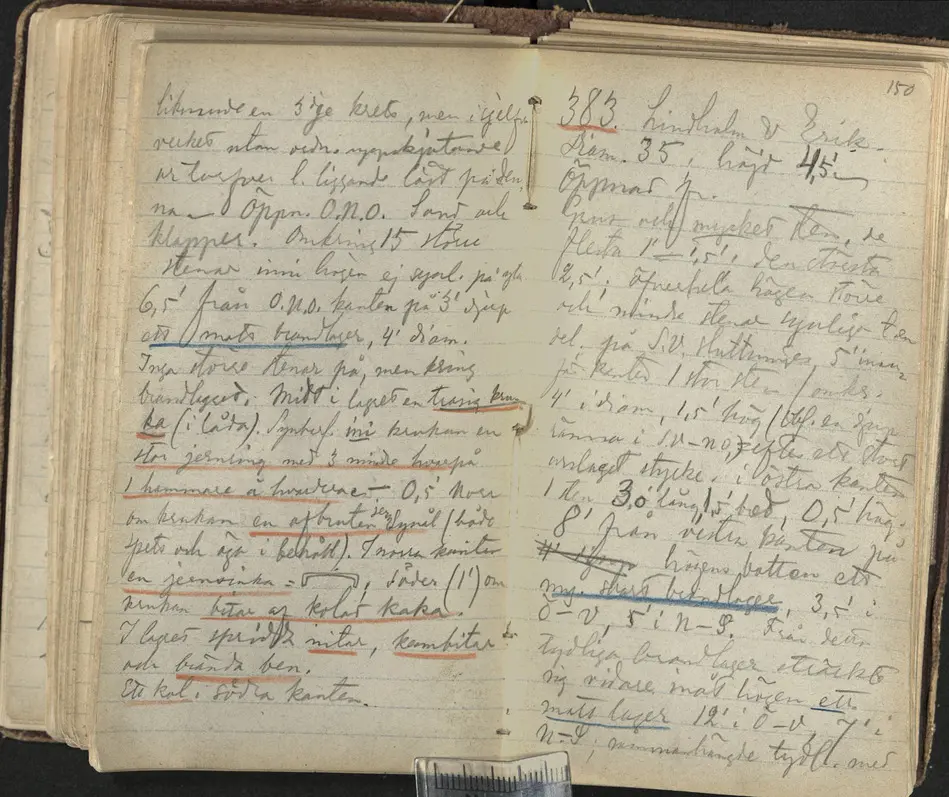 liknande en 3 ge krets, men i sjelfva
verket utan ordn. uppskjutande
l. liggande löst på den
na — Öppn. O.N.O. Sand och
klapper. Omkring 15 större
stenar inni högen ej synl. på ytan
6,5' från O.N.O. kanten på 3' djup
ett matt brandlager, 4' diam.
Inga större stenar på, men kring
brandlagret. Midt i lagret en trasig kru-
ka (i låda). Synberl. ini krukan en
stor jernring med 3 mindre hvarpå
1 hammare å hvardera — 0,5' norr
om krukan en afbruten jern synål (både
spets och öga i behåll). I norra kanten
en jernsinka = , söder (1') om
krukan bitar af kolad kaka.
I lagret spridda nitar, kambitar
och brända ben.
Ett kol i södra kanten.
150
383. Lindholm & Erik.
Diam. 35, höjd 4,5'. —
Öppnad
Grus och mycket sten, de
flesta 1' — 1,5', den största
2,5'. Öfver hela högen större
och mindre stenar synliga
på S.V. sluttningen, 5' innan-
för kanten 1 stor sten
4' i diam, 1,5' hög (en djup
ränna i SV-NO, efter ett stort
afslaget stycke, i östra kanten
1 sten 3,0' lång, 1,5' bred, 0,5' hög.
8' från vestra kanten på
högens botten ett
my. stort brandlager, 3,5' i
Ö-V, 5' i N-S. Från detta
tydliga brandlager sträckte
sig vidare inåt högen ett
matt lager 12' i Ö-V, 7' i
N-S, sammanhängde tydl. med